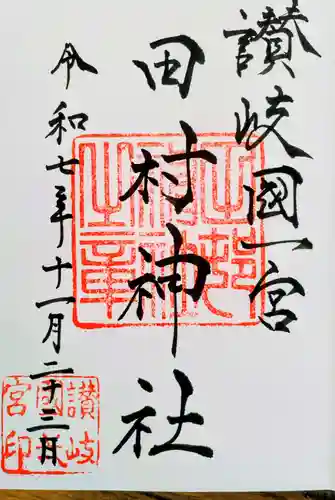 讃岐國一宮
田村神社
令和七年十一月二十三日
田村神社之章
讃岐國一宮印